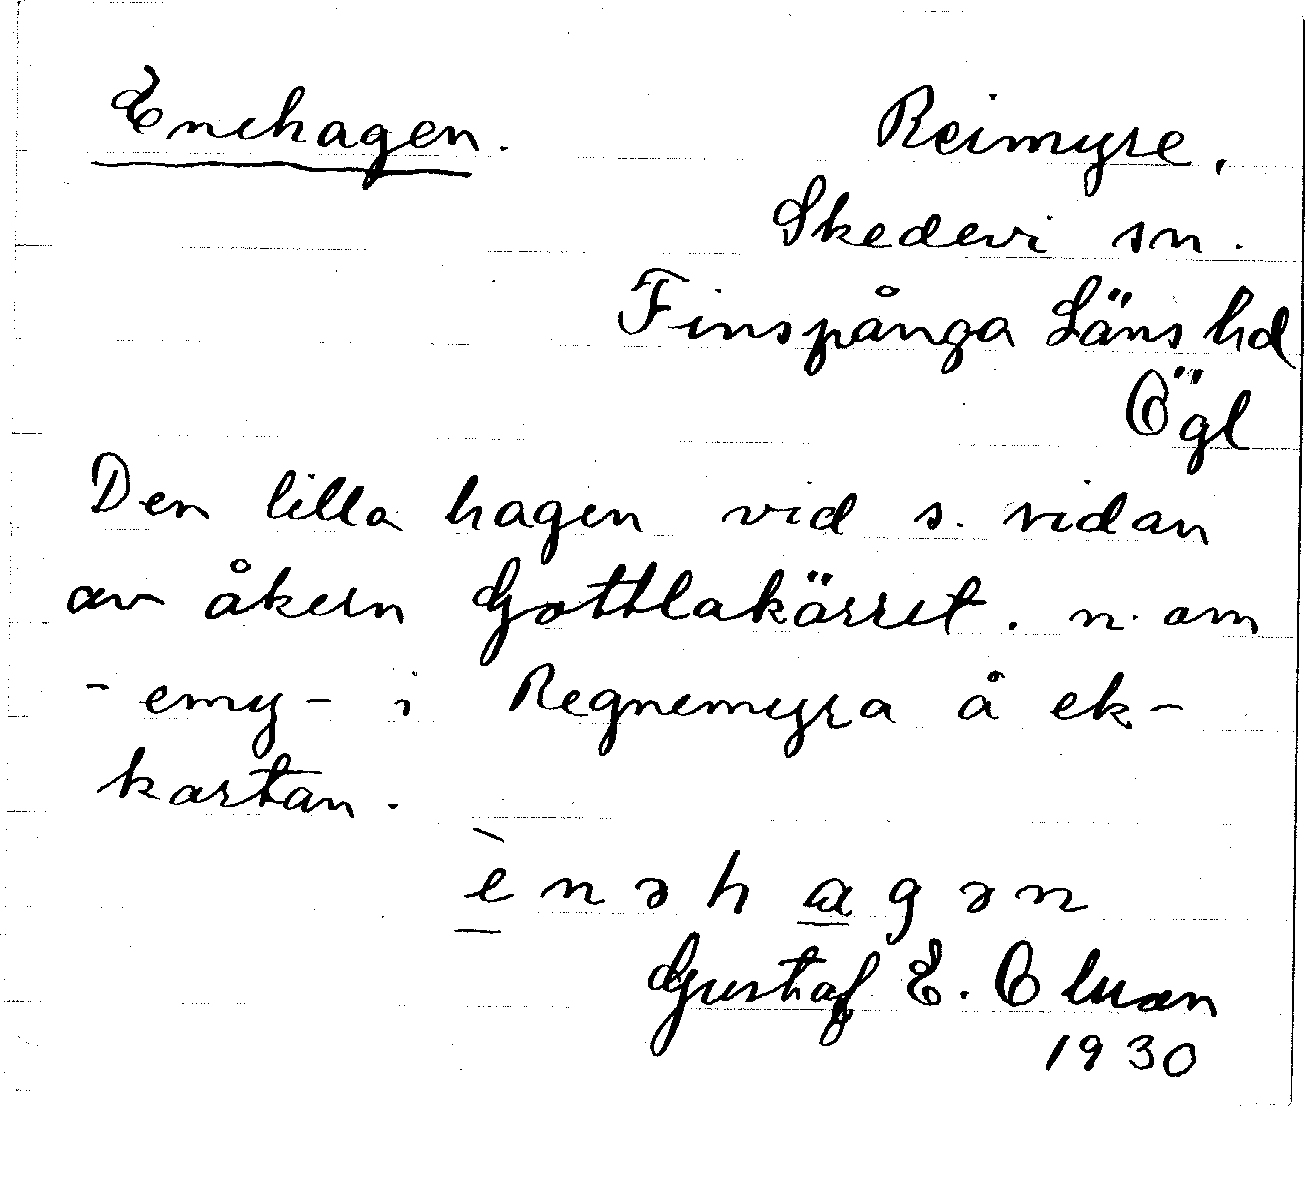 Enehagen.
Reimyre,
Skedevi sn.
Finspånga Läns hd
Ögl
Den lilla hagen vid s. sidan
av åkern Gottlakärret. n. om
- emy - i Regnemyra å ek-
kartan.
ènəhagən
Gustaf E. Olsson
1930